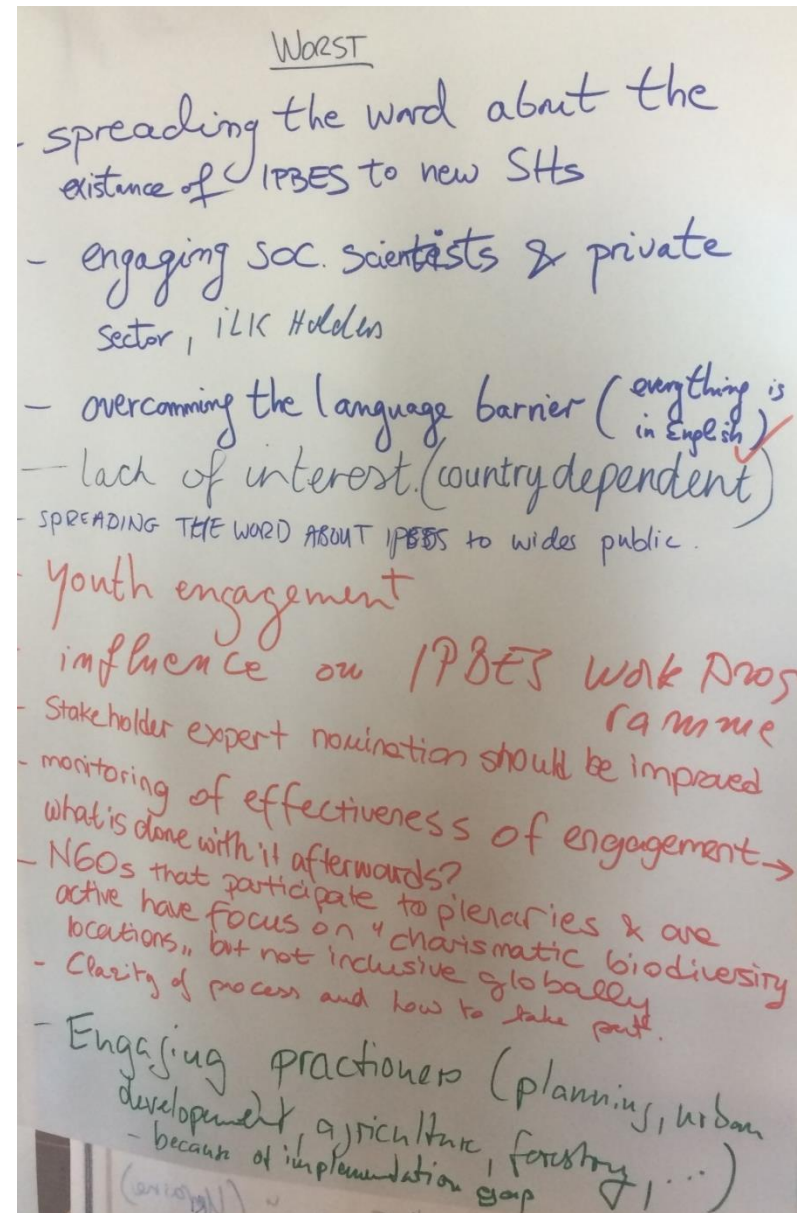 WORST
- spreading the word about the
existance of IPBES to new SHs
- engaging soc. scientists & private
sector, ILK Holders
- overcomming the language barrier (everything is
in English)
- lack of interest. (country dependent)
- SPREADING THE WORD ABOUT IPBES to wides public.
- youth engagement
- influence on IPBES work prog
ramme
- Stakeholder expert nomination should be improved
- monitoring of effectiveness of engagement →
what is done with it afterwards?
- NGOs that participate to plenaries & are
active have focus on "charismatic biodiversity
locations" but not inclusive globally
- Clarity of process and how to take part.
- Engaging practioners (planning, urban
development, agriculture, forestry, ...)
- because of implementation gap